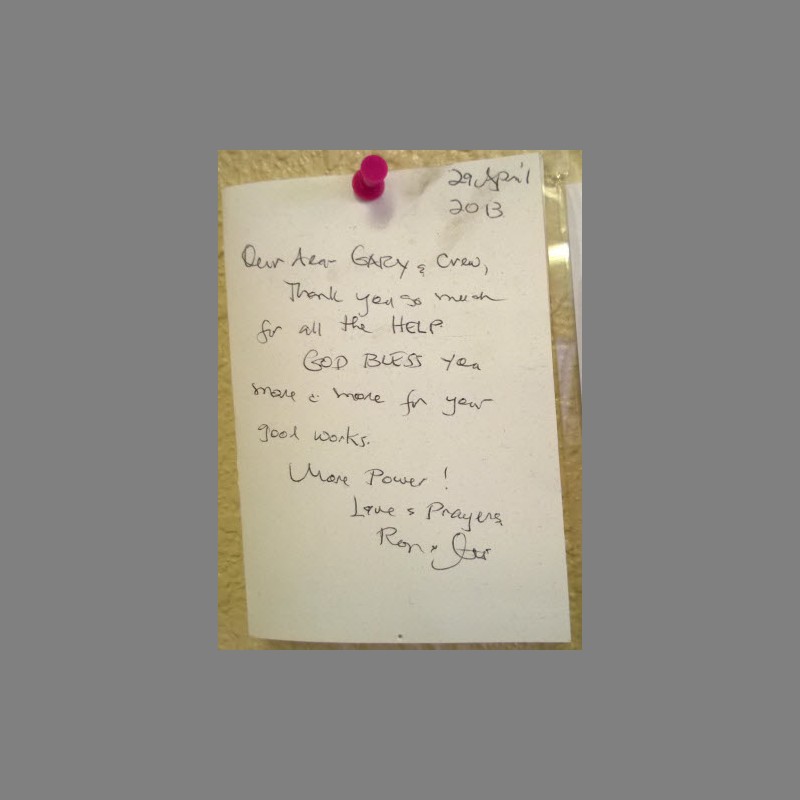 29 April
2013
Dear GARY & Crew,
Thank you so much
for all the HELP
GOD BLESS you
more & more for your
good works.
More Power!
Love & Prayers
Ron &